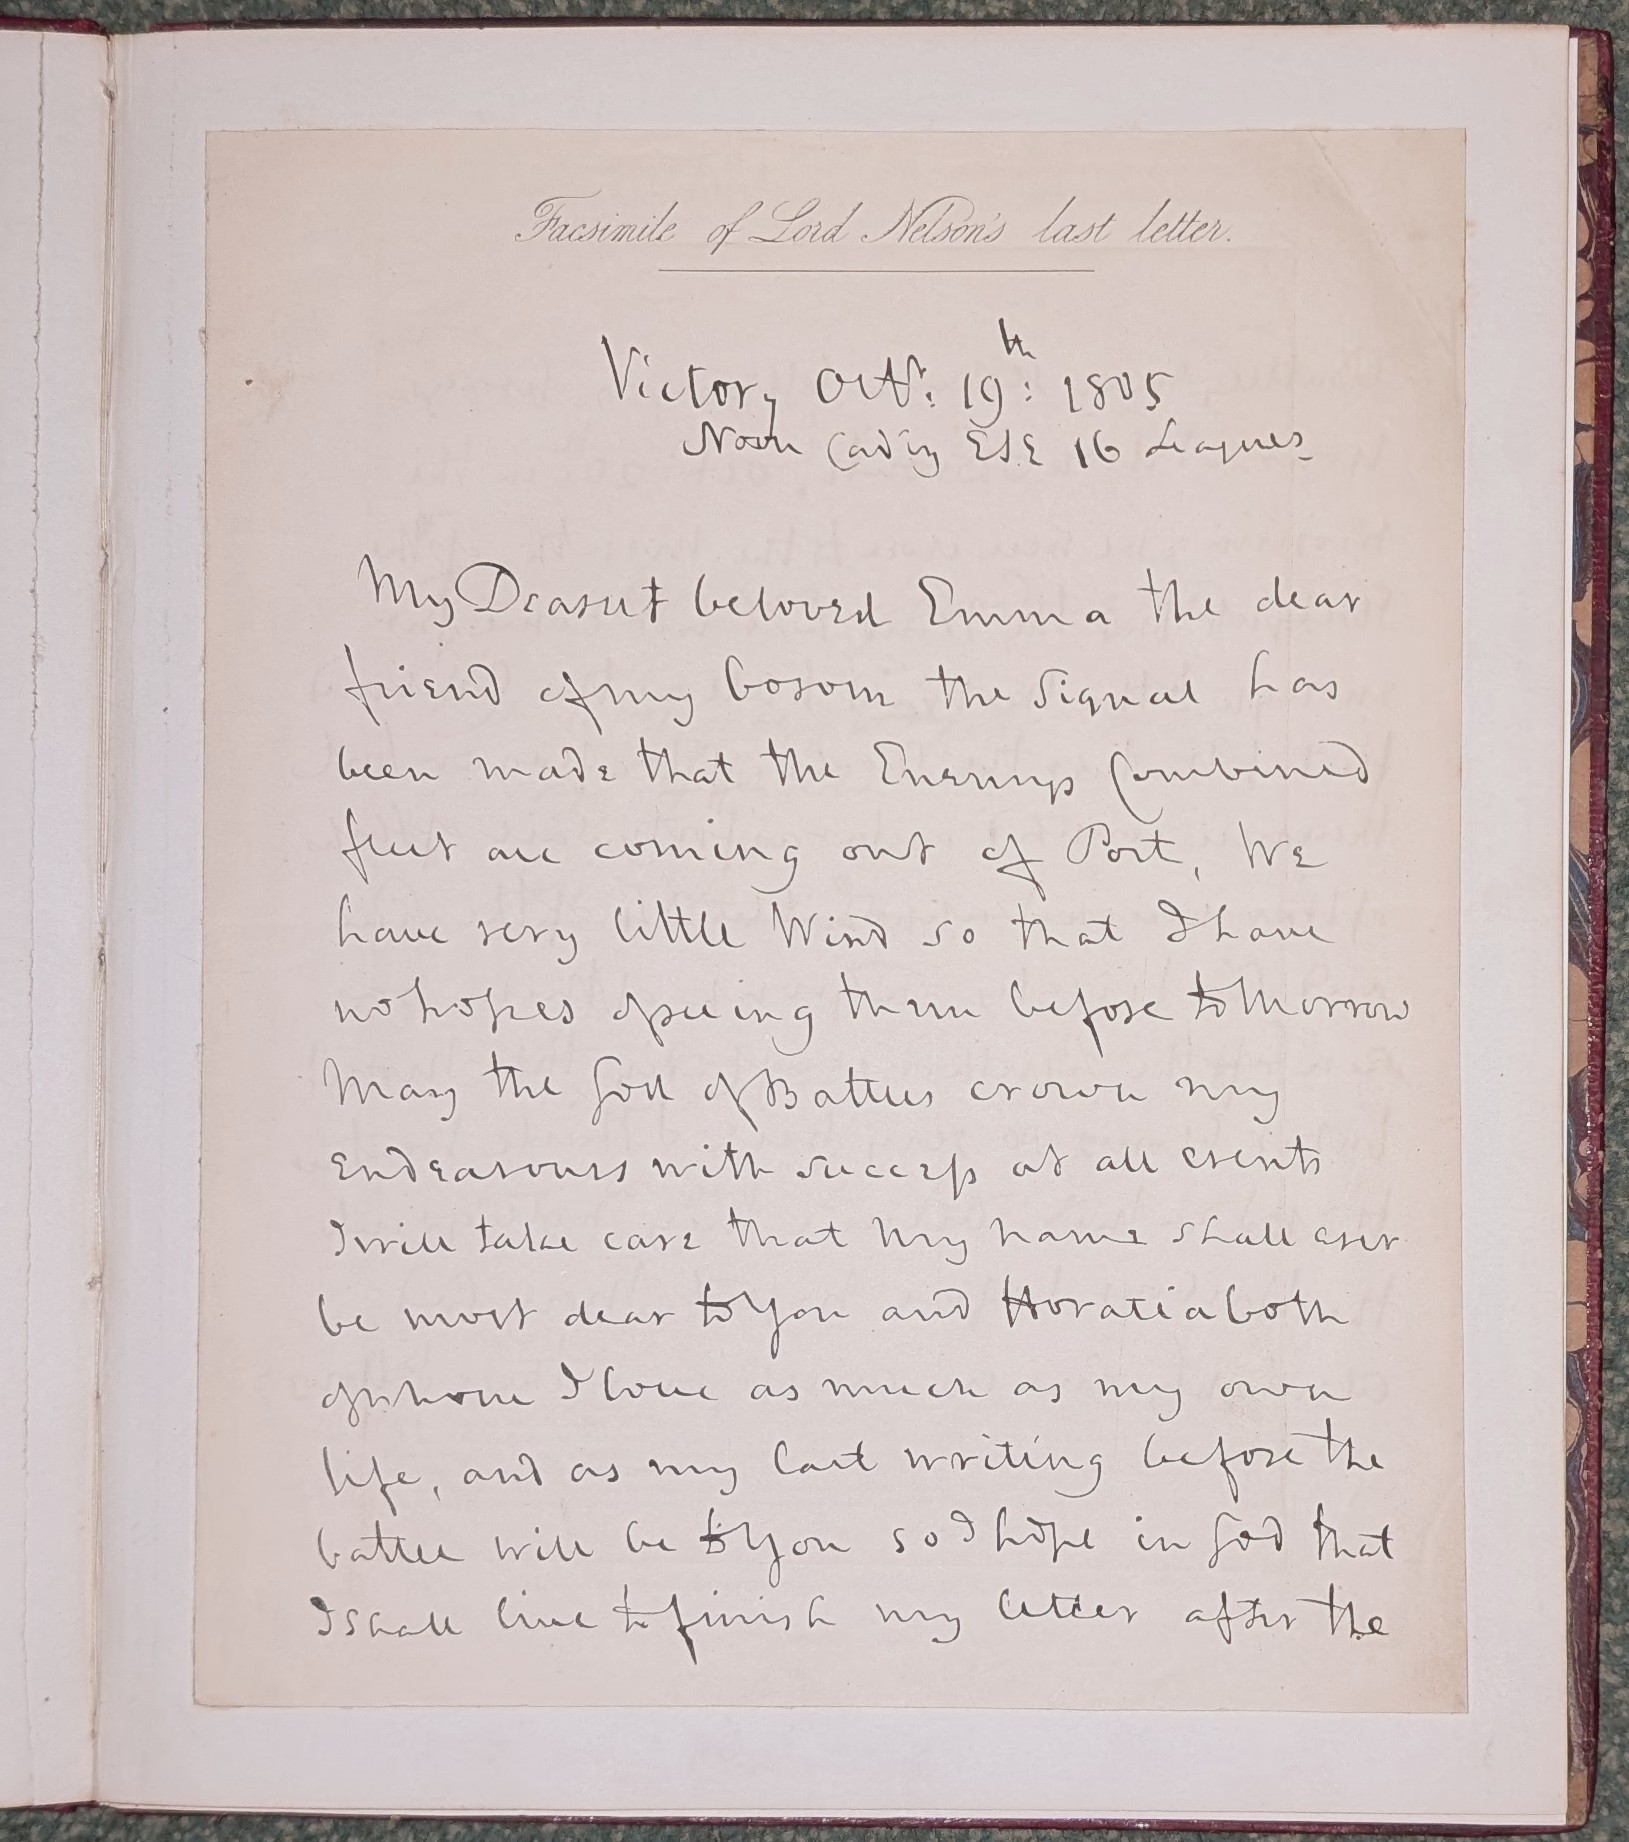 Facsimile of Lord Nelson's last letter.
Victory Octr: 19th: 1805
Noon Cadiz ESE 16 Leagues
My Dearest beloved Emma the dear
friend of my bosom the Signal has
been made that the Enemys Combined
fleet are coming out of Port, We
have very little Wind so that I have
no hopes of seeing them before to Morrow
May the God of Battles crown my
Endeavours with success at all events
I will take care that my name shall ever
be most dear to You and Horatia both
of whom I love as much as my own
life, and as my last writing before the
battle will be to You so I hope in God that
I shall live to finish my letter after the